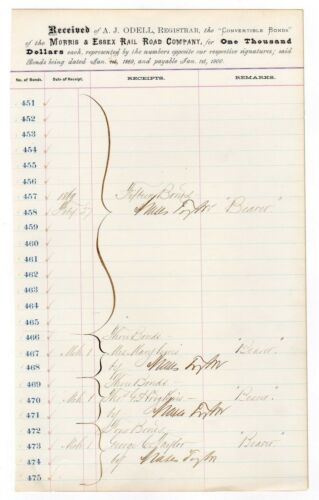 Received of A. J. ODELL, REGISTRAR, the "CONVERTIBLE BONDS"
of the MORRIS & ESSEX RAIL ROAD COMPANY, for One Thousand
Dollars each, represented by the numbers opposite our respective signatures; said
Bonds being dated Jan. 1869, and payable Jan. 1st, 1900.
No. of Bonds. Date of Receipt. RECEIPTS. REMARKS.
451
452
453
454
455
456
457 1869 Fifteen Bonds
458 Feby 27 Moses Taylor "Bearer"
459
460
461
462
463
464
465
466 Three Bonds
467 Mch 1 Mrs Mary "Bearer"
468 by Moses Taylor
469 Three Bonds
470 Mch 1 "Bearer"
471 by Moses Taylor
472 Four Bonds
473 Mch 1 George C Taylor "Bearer"
474 by Moses Taylor
475